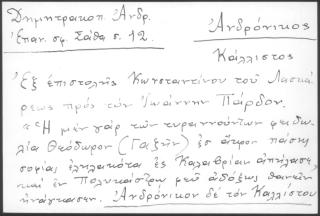 Δημητρακοπ. Ἀνδρ.
Ἐπαν. σφ. Σάθα σ. 12.
Ἀνδρόνικος
Κάλλιστος
Ἐξ ἐπιστολῆς Κωνσταντίνου τοῦ Λασκά
ρεως πρὸς τὸν Ἰωάννην Πάρδον.
"Ἡ μὲν γὰρ τῶν τυραννούντων φειδω
λία Θεόδωρον (Γαζῆν) ἐς ἄκρον πάσης
σοφίας ἐληλακότα ἐς Καλαβρίαν ἀπήλασε
καὶ ἐν Πολυκάστρῳ φεῦ ἀδόξως θανεῖν
ἠνάγκασεν. Ἀνδρόνικον δὲ τὸν Καλλίστου